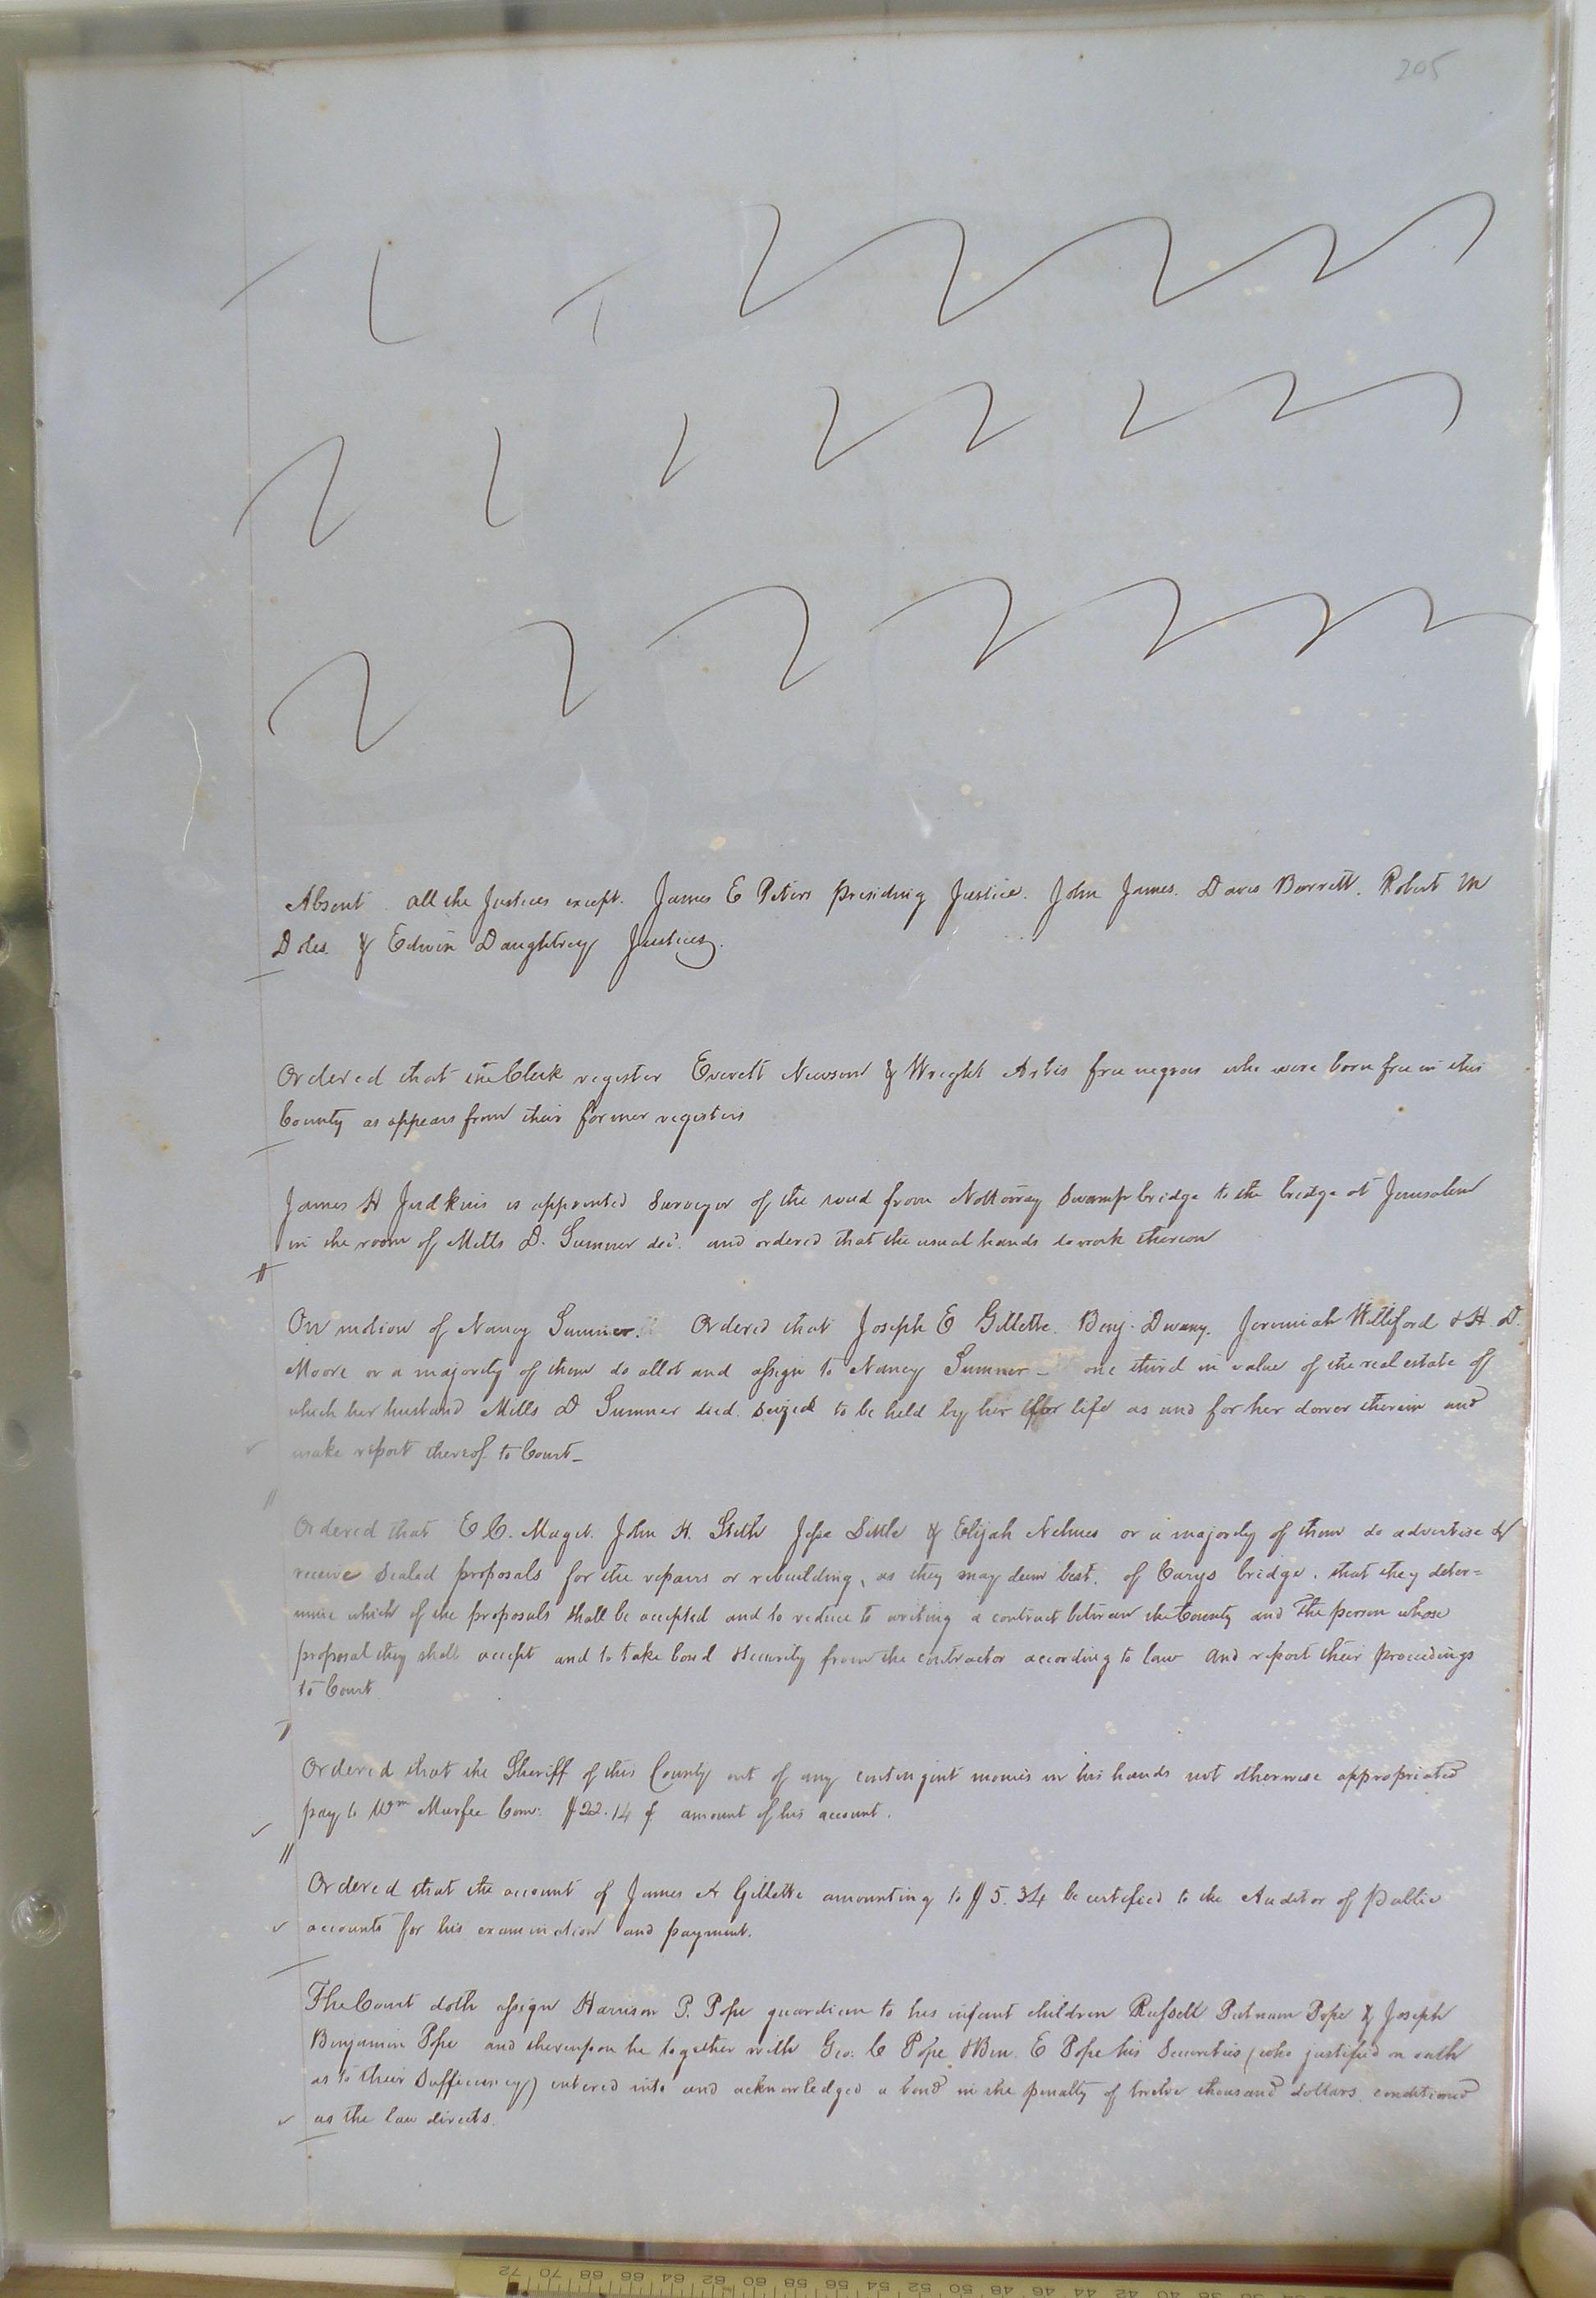 205
Absent all the Justices except. James E Peters presiding Justice. John James. Davis Barrett. Robert M
Doles. & Edwin Daughtrey Justices.
Ordered that the Clerk register Everett Newsom & Wright Artis free negroes who were born free in this
County as appears from their former registers
James H Judkins is appointed Surveyor of the road from Nottoway Swamp bridge to the bridge at Jerusalem
in the room of Mills D. Sumner decd. and ordered that the usual hands to work thereon
On motion of Nancy Sumner. Ordered that Joseph E Gillette. Benj. Dwany. Jeremiah Williford & H. D.
Moore or a majority of them do allot and assign to Nancy Sumner - one third in value of the real estate of
which her husband Mills D Sumner died seized to be held by her for life as and for her dower therein and
make report thereof to Court-
Ordered that E C. Maget. John H. Stith Jesse Little & Elijah Nelmes or a majority of them do advertise &
receive sealed proposals for the repairs or rebuilding, as they may deem best. of Carys bridge, that they deter=
mine which of the proposals shall be accepted and to reduce to writing a contract between the County and The person whose
proposal they shall accept and to take bond & security from the contractor according to law and report their proceedings
to Court
Ordered that the Sheriff of this County out of any contingent monies in his hands not otherwise appropriated
pay to Wm Murfee Com: $22.14 amount of his account.
Ordered that the account of James A Gillette amounting to $5.34 be certified to the Auditor of Public
accounts for his examination and payment.
The Court doth assign Harrison P. Pope guardian to his infant children Russell Putnam Pope & Joseph
Benjamin Pope and thereupon he together with Geo. C Pope & Ben. E Pope his Securities (who justified on oath
as to their Sufficiency) entered into and acknowledged a bond in the penalty of twelve thousand dollars. conditioned
as the law directs.
72 70 68 66 64 62 60 58 56 54 52 50 48 46 44 42 40 38 36